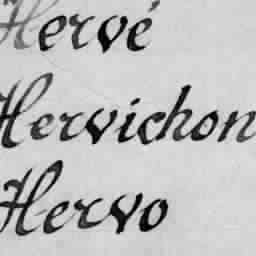 Hervé
Hervichon
Hervo